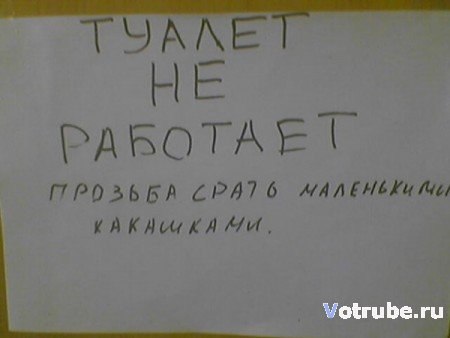 ТУАЛЕТ
НЕ
РАБОТАЕТ
ПРОЗЬБА СРАТЬ МАЛЕНЬКИМИ
КАКАШКАМИ.
Votrube.ru